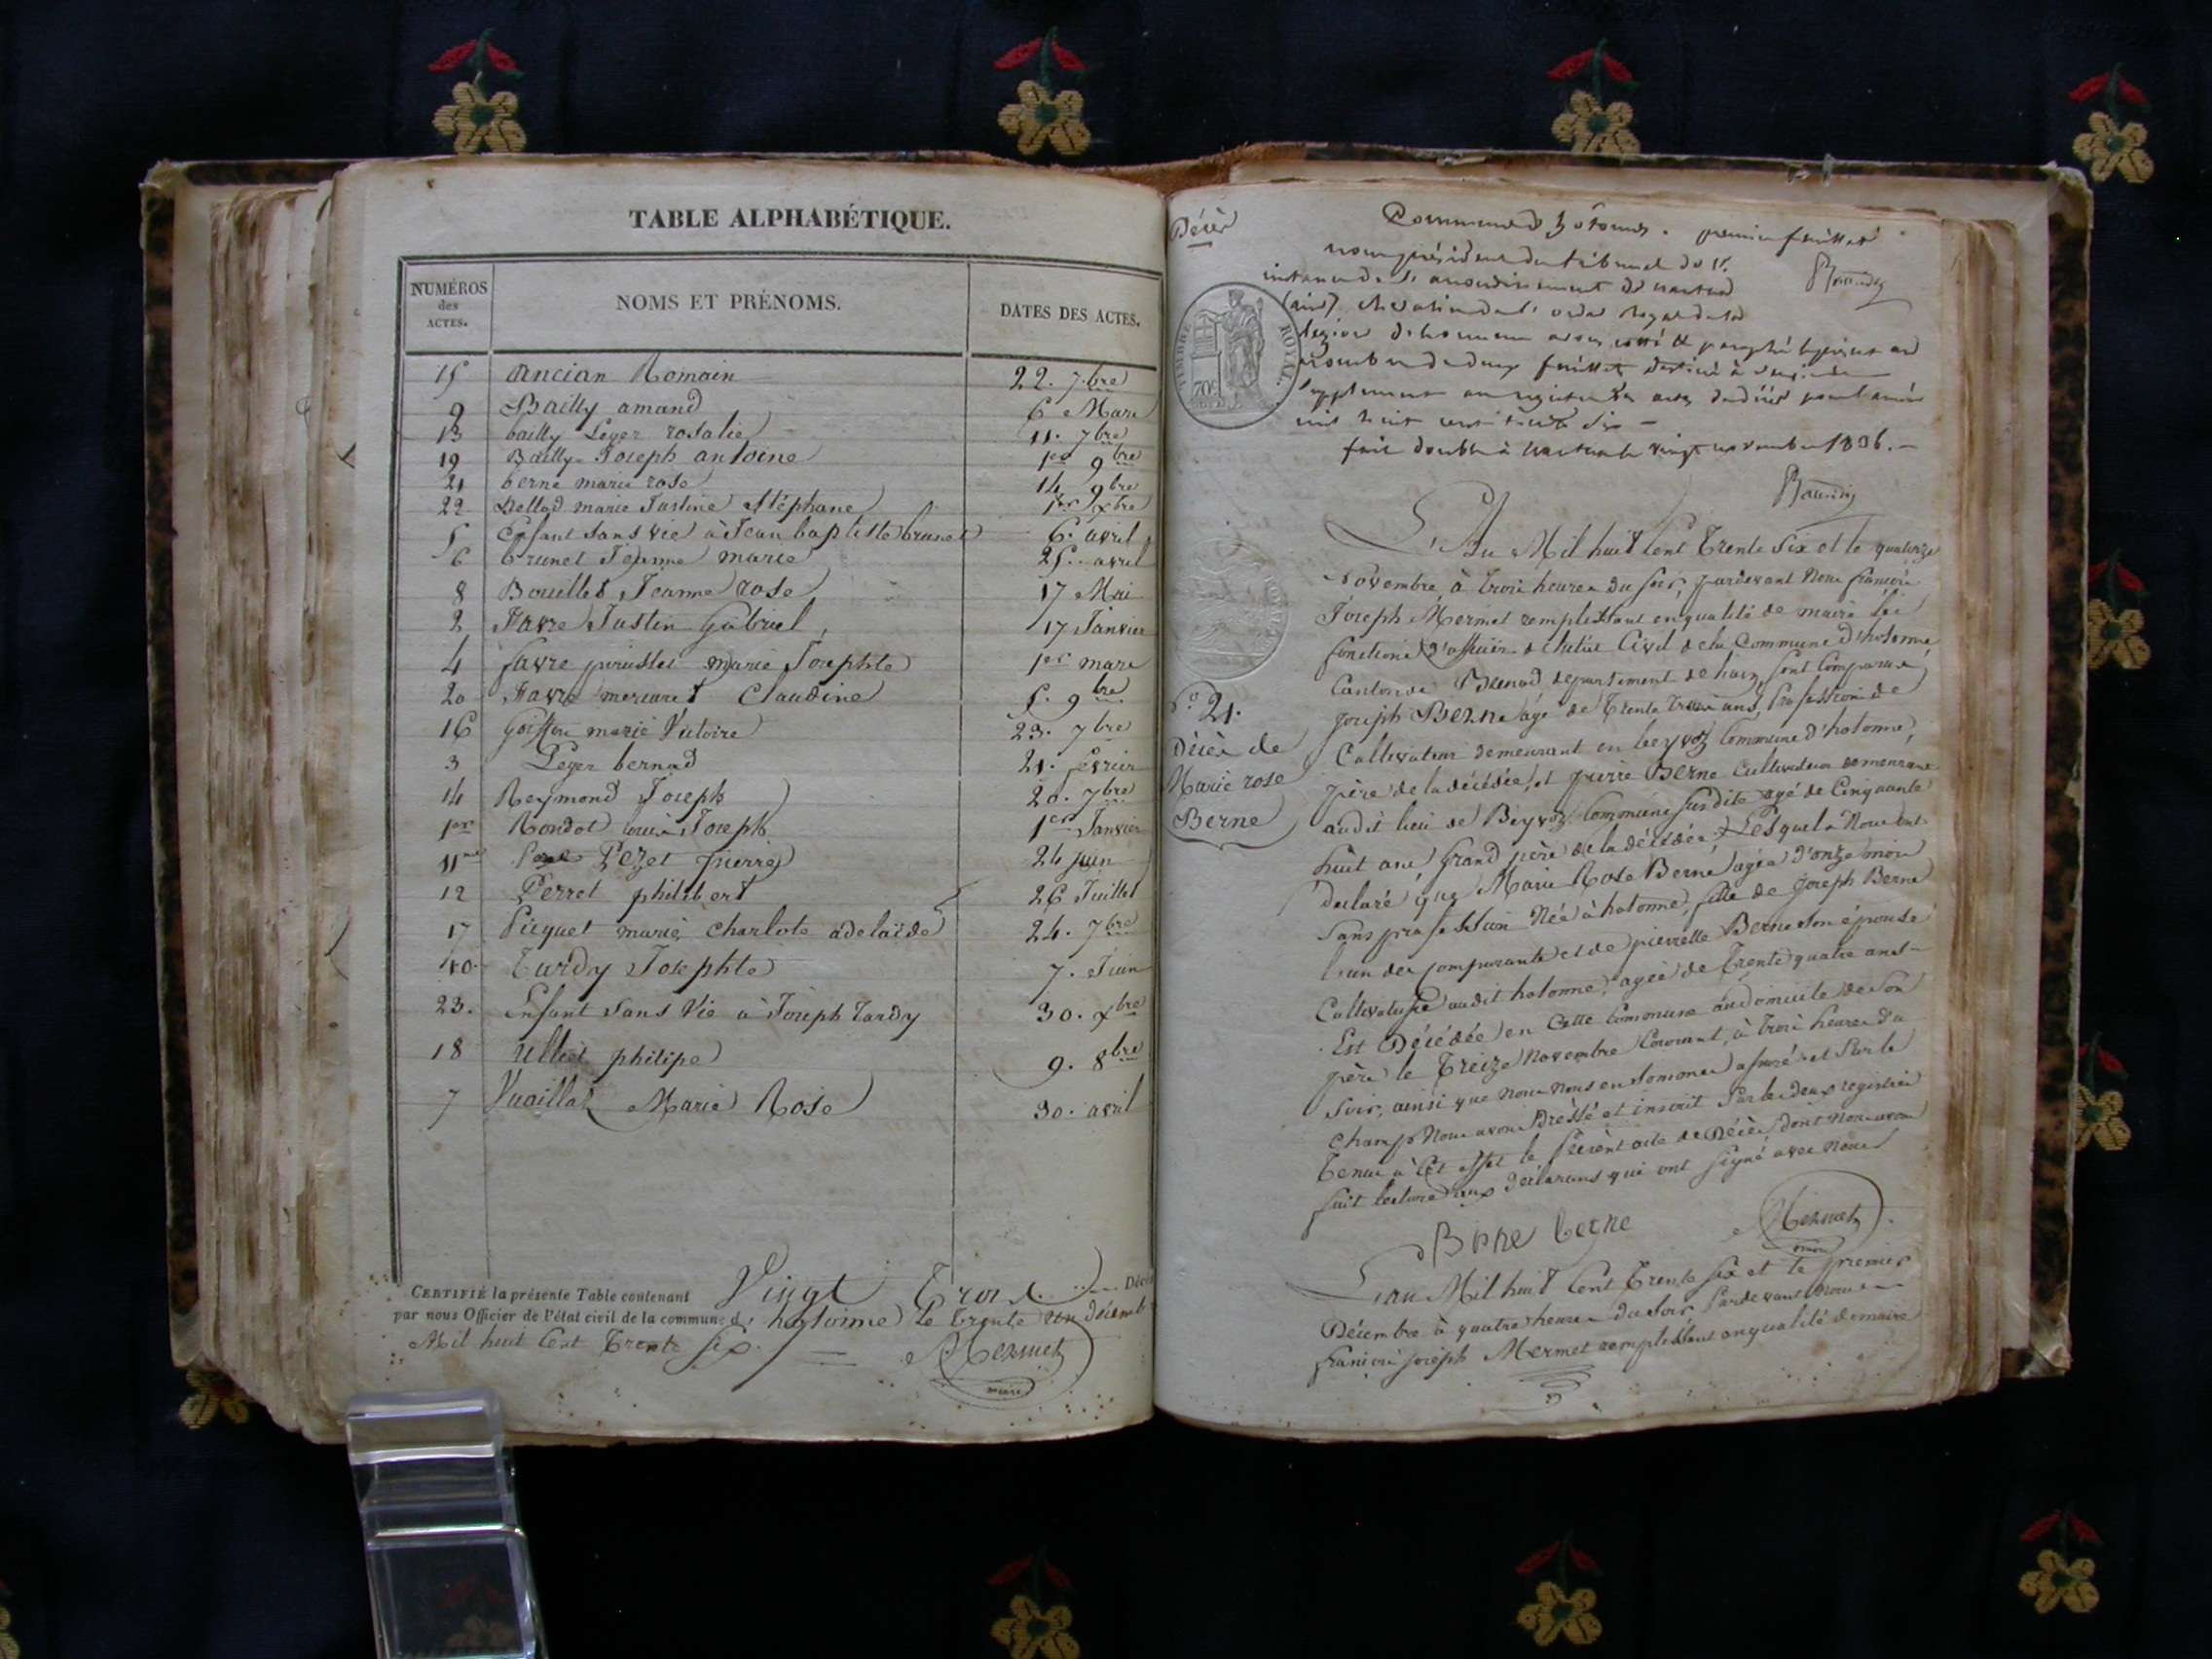 TABLE ALPHABÉTIQUE.
NUMÉROS des ACTES. NOMS ET PRÉNOMS. DATES DES ACTES.
15 ancian Romain 22. 7bre
9 Bailly amand 6 Mare
13 bailly Leger rosalie 11. 7bre
19 Bailly Joseph antoine 1er 9bre
21 berne marie rose 14 9bre
22 Dellod marie Justine Stéphane 1er Xbre
5 Enfant sans vie à Jean baptiste brunet 6. avril
6 brunet Jeanne marie 25. avril
8 Bouillet Jeanne rose 17 Mai
2 Favre Justin Gabriel, 17 Janvier
4 favre marie Josephte 1er mare
20 Favre mercuret Claudine 5. 9bre
16 Goiffon marie Victoire 23. 7bre
3 Leger bernad 21. fevrier
14 Reymond Joseph 20. 7bre
1er Rondot louis Joseph 1er Janvier
11me Pezet pierre 24 juin
12 Perret philibert 26 Juillet
17 Piquet marie Charlote adelaïde 24. 7bre
10. Tardy Josephte 7. Juin
23. Enfant sans Vie à Joseph Tardy 30. Xbre
18 Ulliet philipe 9. 8bre
7 Vuaillat Marie Rose 30. avril
CERTIFIÉ la présente Table contenant Vingt Trois Décès
par nous Officier de l'état civil de la commune d' hotonne le Trente un décembre
Mil huit Cent Trente six.
Mermet
maire
Décès
Commune d'hotonnes. premier feuillet
nous président du tribunal de 1re
instance de l'arrondissement de nantua
(ain), chevalier de l'ordre royal de la
légion d'honneur avons coté & paraphé le présent au
nombre de deux feuillets destiné à servir de
supplément au registre des actes de décès pour l'année
mil huit cent trente six -
fait double à nantua le vingt novembre 1836. -
TIMBRE ROYAL.
70c
L'An Mil huit Cent Trente Six et le quatorze
Novembre à trois heures du soir, pardevant Nous françois
Joseph Mermet remplissant en qualité de maire les
fonctions d'officier de l'état Civil de la Commune d'hotonne,
Canton de Brenod département de l'ain, sont Comparus
Joseph Berne agé de Trente Trois ans, Profession de
Cultivateur demeurant en beyvoz Commune d'hotonne,
père de la décédée, et pierre Berne Cultivateur demeurant
audit lieu de Beyvoz Commune susdite agé de Cinquante
huit ans, Grand père de la décédée; Lesquels Nous ont
déclaré que Marie Rose Berne agée d'onze mois
Sans profession Née à hotonne, fille de Joseph Berne
l'un des comparants et de pierrette Berne son épouse
Cultivatrice audit hotonne, agée de Trente quatre ans -
Est Décédée en Cette Commune au domicile de son
père le Treize Novembre Courant, à trois heures du
soir, ainsi que nous nous en sommes assuré et sur le
champ Nous avons Dréssé et inscrit sur les deux registres
Tenus à Cet effet le présent acte de Décès, dont nous avons
fait lecture aux déclarans qui ont signé avec Nous
No 21.
Décès de
Marie rose
Berne
Berne berne Mermet
maire
L'an Mil huit Cent Trente six et le premier
Décembre à quatre heures du soir pardevant Nous
françois joseph Mermet remplissant en qualité de maire